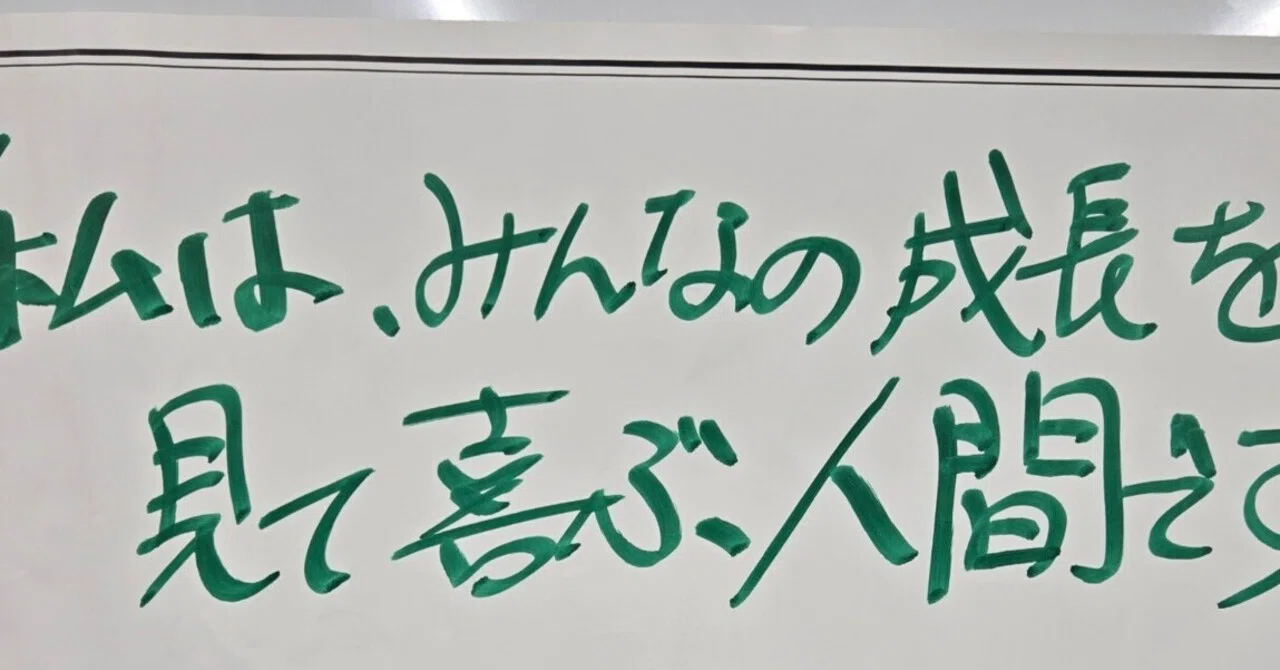 私は、みんなの成長を
見て喜ぶ人間です